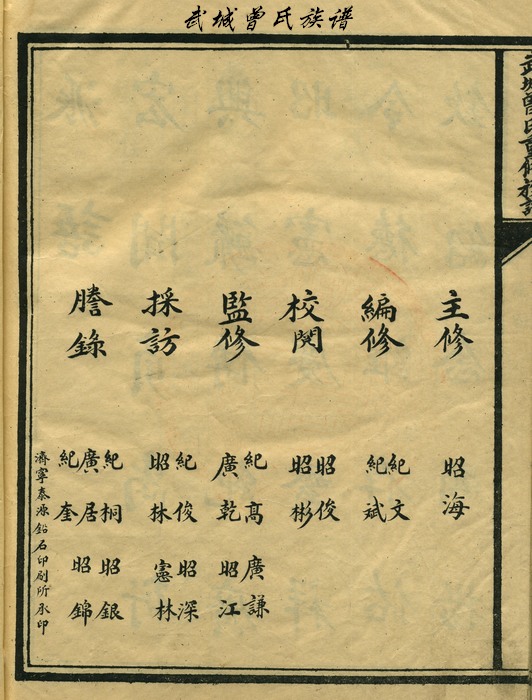 武城曾氏族谱
武城曾氏重修族譜
主修
昭海
編修
紀文
紀斌
校閱
昭俊
昭彬
監修
紀高 廣謙
廣乾 昭江
採訪
紀俊 昭深
昭林 憲林
謄錄
紀桐 昭銀
廣居
紀奎 昭錦
濟寧泰源鉛石印刷所承印